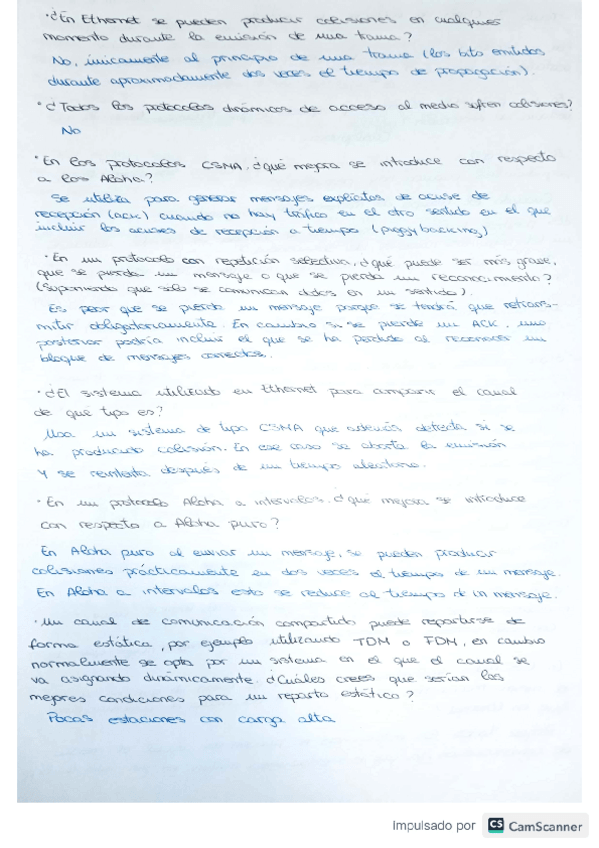 ·¿En Ethernet se pueden producir colisiones en cualquier
momento durante la emisión de una trama?
No, únicamente al principio de una trama (los bits emitidos
durante aproximadamente dos veces el tiempo de propagación).
·¿Todos los protocolos dinámicos de acceso al medio sufren colisiones?
No
·En los protocolos CSMA, ¿qué mejora se introduce con respecto
a los Aloha?
Se utiliza para generar mensajes explícitos de acuse de
recepción (ack) cuando no hay tráfico en el otro sentido en el que
incluir los acuses de recepción a tiempo (piggybacking)
·En un protocolo con repetición selectiva, ¿qué puede ser más grave,
que se pierda un mensaje o que se pierda un reconocimiento?
(Suponiendo que solo se comunican datos en un sentido).
Es peor que se pierda un mensaje porque se tendrá que retrans-
mitir obligatoriamente. En cambio si se pierde un ACK, uno
posterior podría incluir el que se ha perdido al reconocer un
bloque de mensajes correctos.
·¿El sistema utilizado en Ethernet para compartir el canal
de que tipo es?
Usa un sistema de tipo CSMA que además detecta si se
ha producido colisión. En ese caso se aborta la emisión
y se reintenta después de un tiempo aleatorio.
·En un protocolo Aloha a intervalos, ¿qué mejora se introduce
con respecto a Aloha puro?
En Aloha puro al enviar un mensaje, se pueden producir
colisiones prácticamente en dos veces el tiempo de un mensaje.
En Aloha a intervalos esto se reduce al tiempo de un mensaje.
·Un canal de comunicación compartido puede repartirse de
forma estática, por ejemplo utilizando TDM o FDM, en cambio
normalmente se opta por un sistema en el que el canal se
va asignando dinámicamente. ¿Cuáles crees que serían las
mejores condiciones para un reparto estático?
Pocas estaciones con carga alta
Impulsado por CS CamScanner